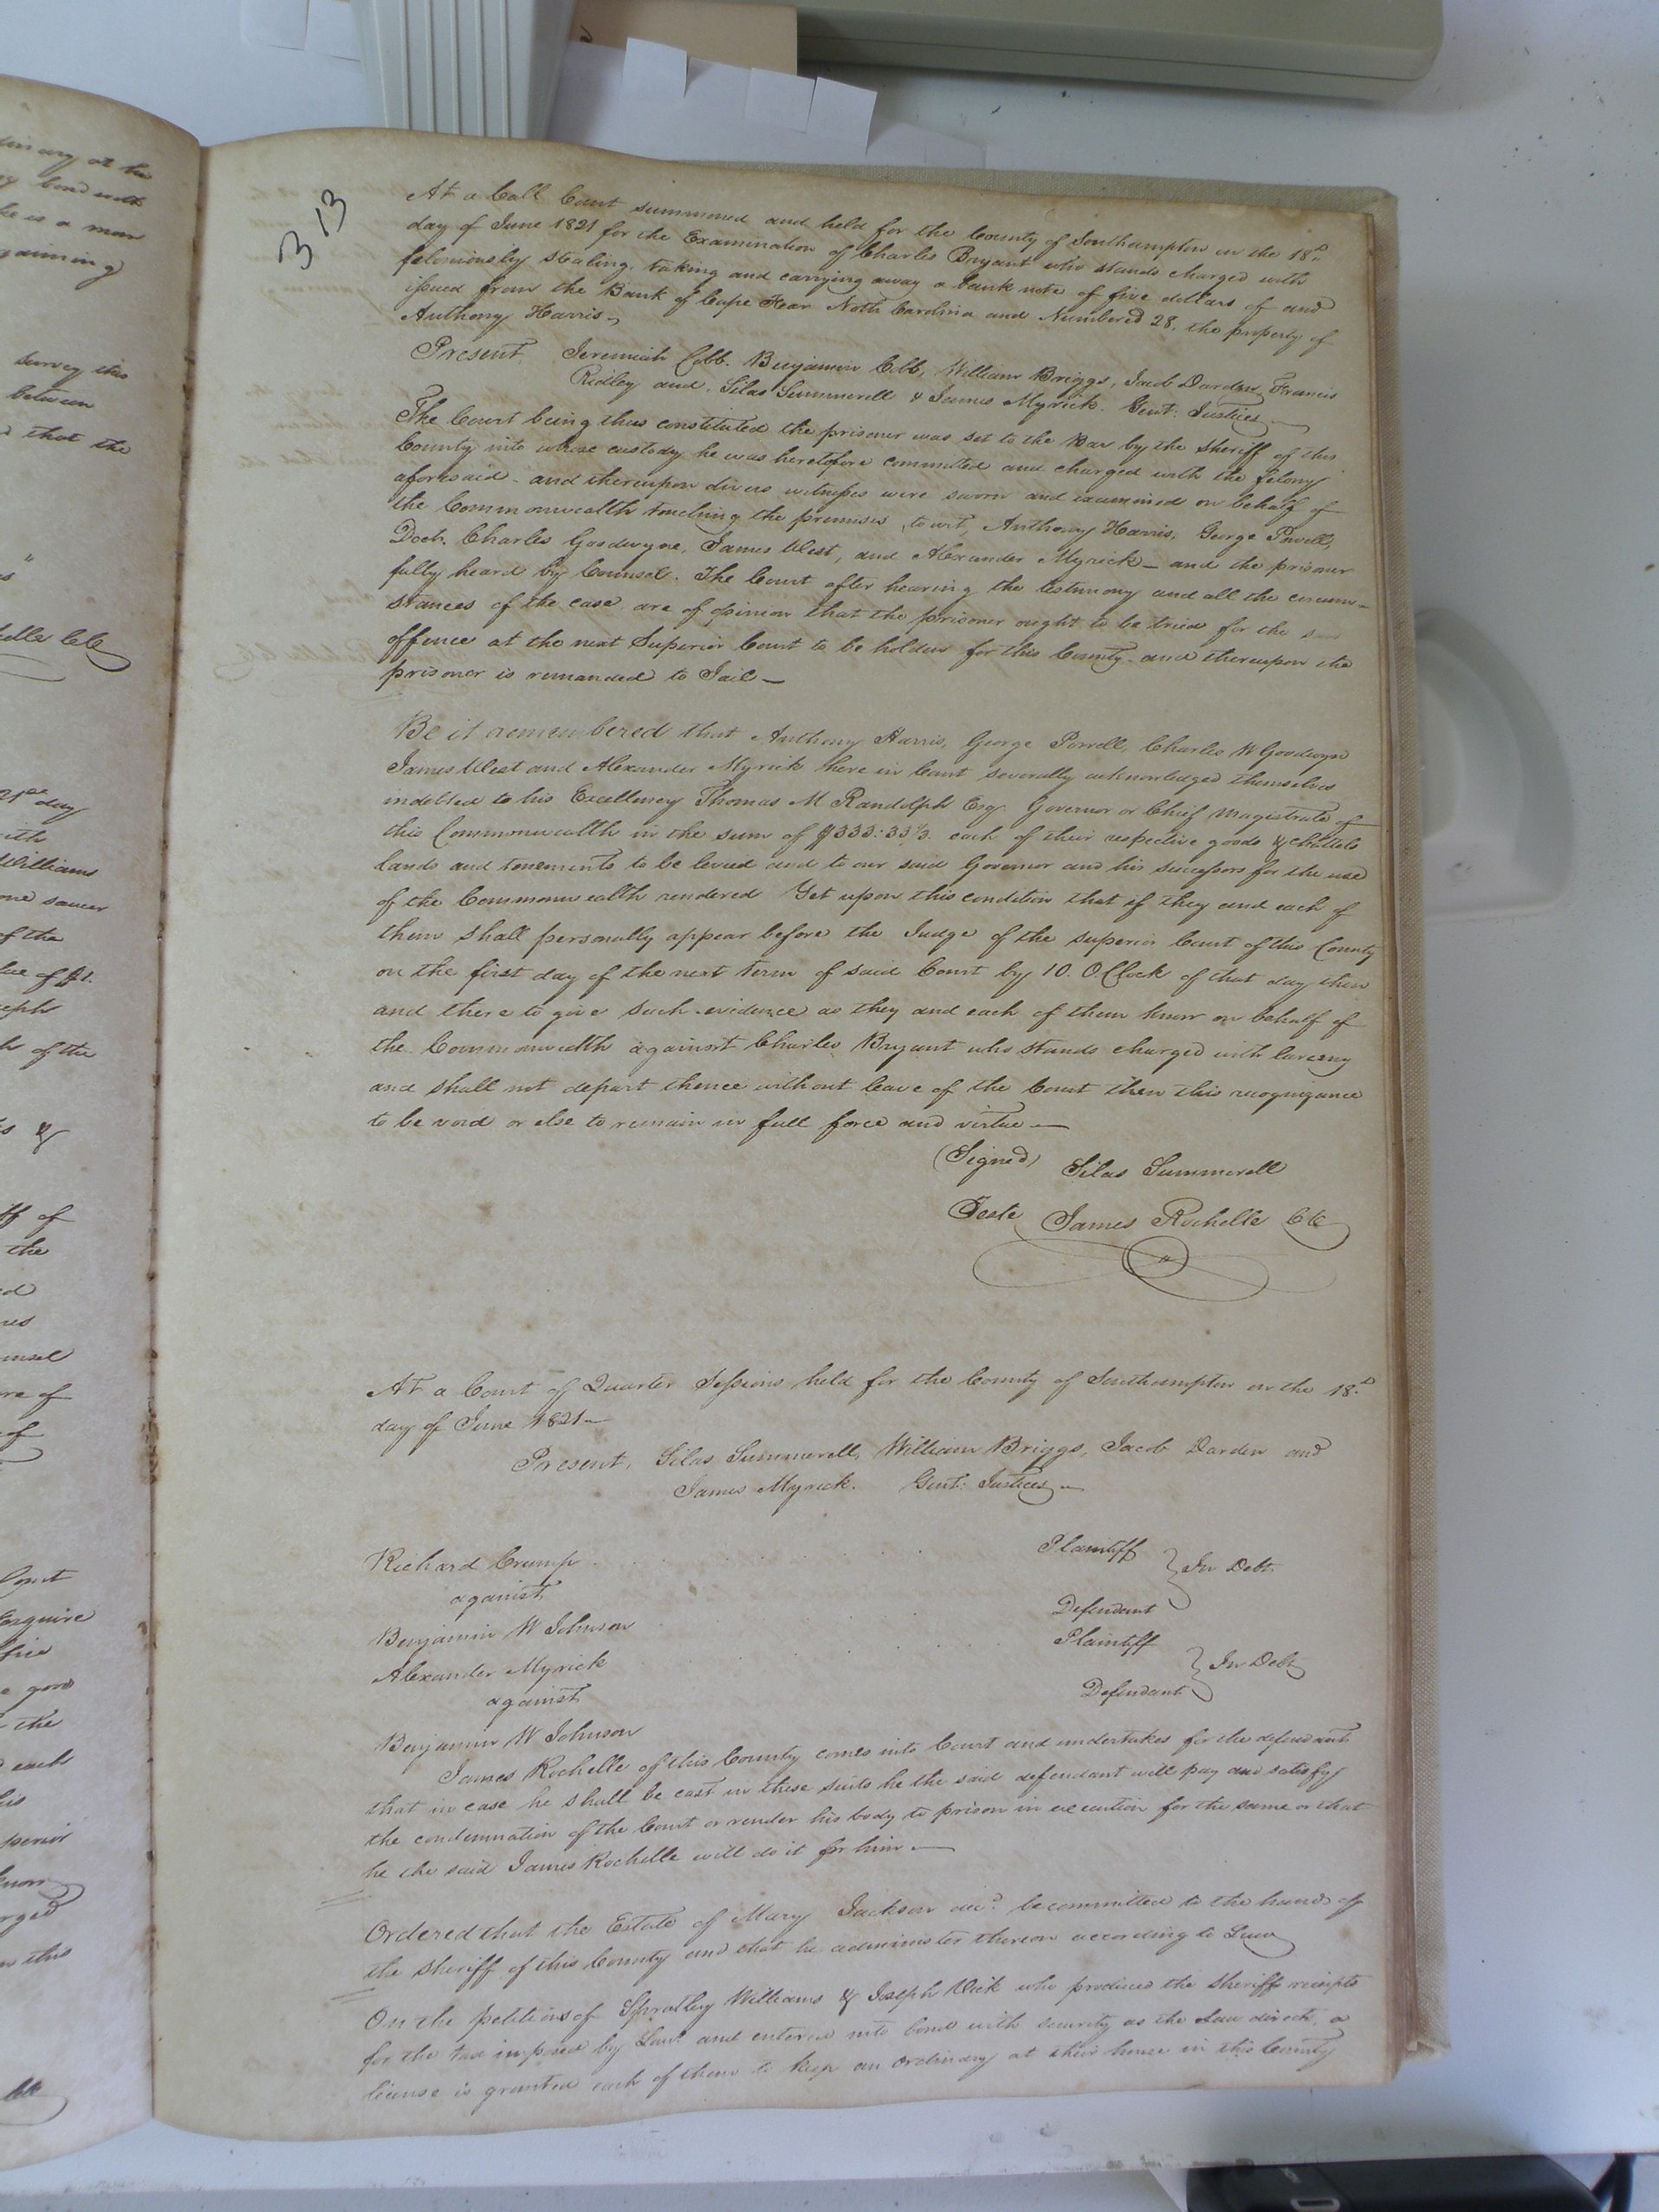 313
At a Call Court summoned and held for the County of Southampton on the 18th
day of June 1821 for the Examination of Charles Bryant who stands charged with
feloniously stealing, taking and carrying away a bank note of five dollars of and
issued from the Bank of Cape Fear North Carolina and Numbered 28, the property of
Anthony Harris
Present Jeremiah Cobb. Benjamin Cobb, William Briggs, Jacob Darden, Francis
Ridley and Silas Summerell & James Myrick. Gent: Justices
The Court being thus constituted the prisoner was set to the Bar by the Sheriff of this
County into whose custody he was heretofore committed and charged with the felony
aforesaid - and thereupon divers witnesses were sworn and examined on behalf of
the Commonwealth touching the premises, to wit, Anthony Harris, George Powell,
Doctr. Charles Goodwyne, James West, and Alexander Myrick - and the prisoner
fully heard by Counsel. The Court after hearing the testimony and all the circum-
stances of the case are of opinion that the prisoner ought to be tried for the
offence at the next Superior Court to be holden for this County - and thereupon the
prisoner is remanded to Jail -
Be it remembered that Anthony Harris, George Powell, Charles W Goodwyn
James West and Alexander Myrick here in Court severally acknowledged themselves
indebted to his Excellency Thomas M Randolph Esqr. Governor or Chief Magistrate of
this Commonwealth in the sum of $333:33⅓ each of their respective goods & chattels
lands and tenements to be levied and to our said Governor and his successors for the use
of the Commonwealth rendered Yet upon this condition that if they and each of
them shall personally appear before the Judge of the superior Court of this County
on the first day of the next term of said Court by 10. O.Clock of that day then
and there to give such evidence as they and each of them know on behalf of
the Commonwealth against Charles Bryant who stands charged with larceny
and shall not depart thence without leave of the Court then this recognizance
to be void or else to remain in full force and virtue -
(Signed) Silas Summerell
Teste James Rochelle CC
At a Court of Quarter Sessions held for the County of Southampton on the 18th
day of June 1821 -
Present, Silas Summerell, William Briggs, Jacob Darden and
James Myrick. Gent: Justices -
Richard Crump Plaintiff
against In Debt.
Benjamin W Johnson Defendant
Alexander Myrick Plaintiff
against In Debt
Benjamin W Johnson Defendant
James Rochelle of this County comes into Court and undertakes for the defendant
that in case he shall be cast in these suits he the said defendant will pay and satisfy
the condemnation of the Court or render his body to prison in execution for the same or that
he the said James Rochelle will do it for him -
Ordered that the Estate of Mary Jackson decd. be committed to the hands of
the Sheriff of this County and that he administer thereon according to Law
On the petitions of Spratley Williams & Joseph Vick who produced the Sheriff receipts
for the tax imposed by Law and entered into bond with security as the Law directs, a
license is granted each of them to keep an Ordinary at their house in this County